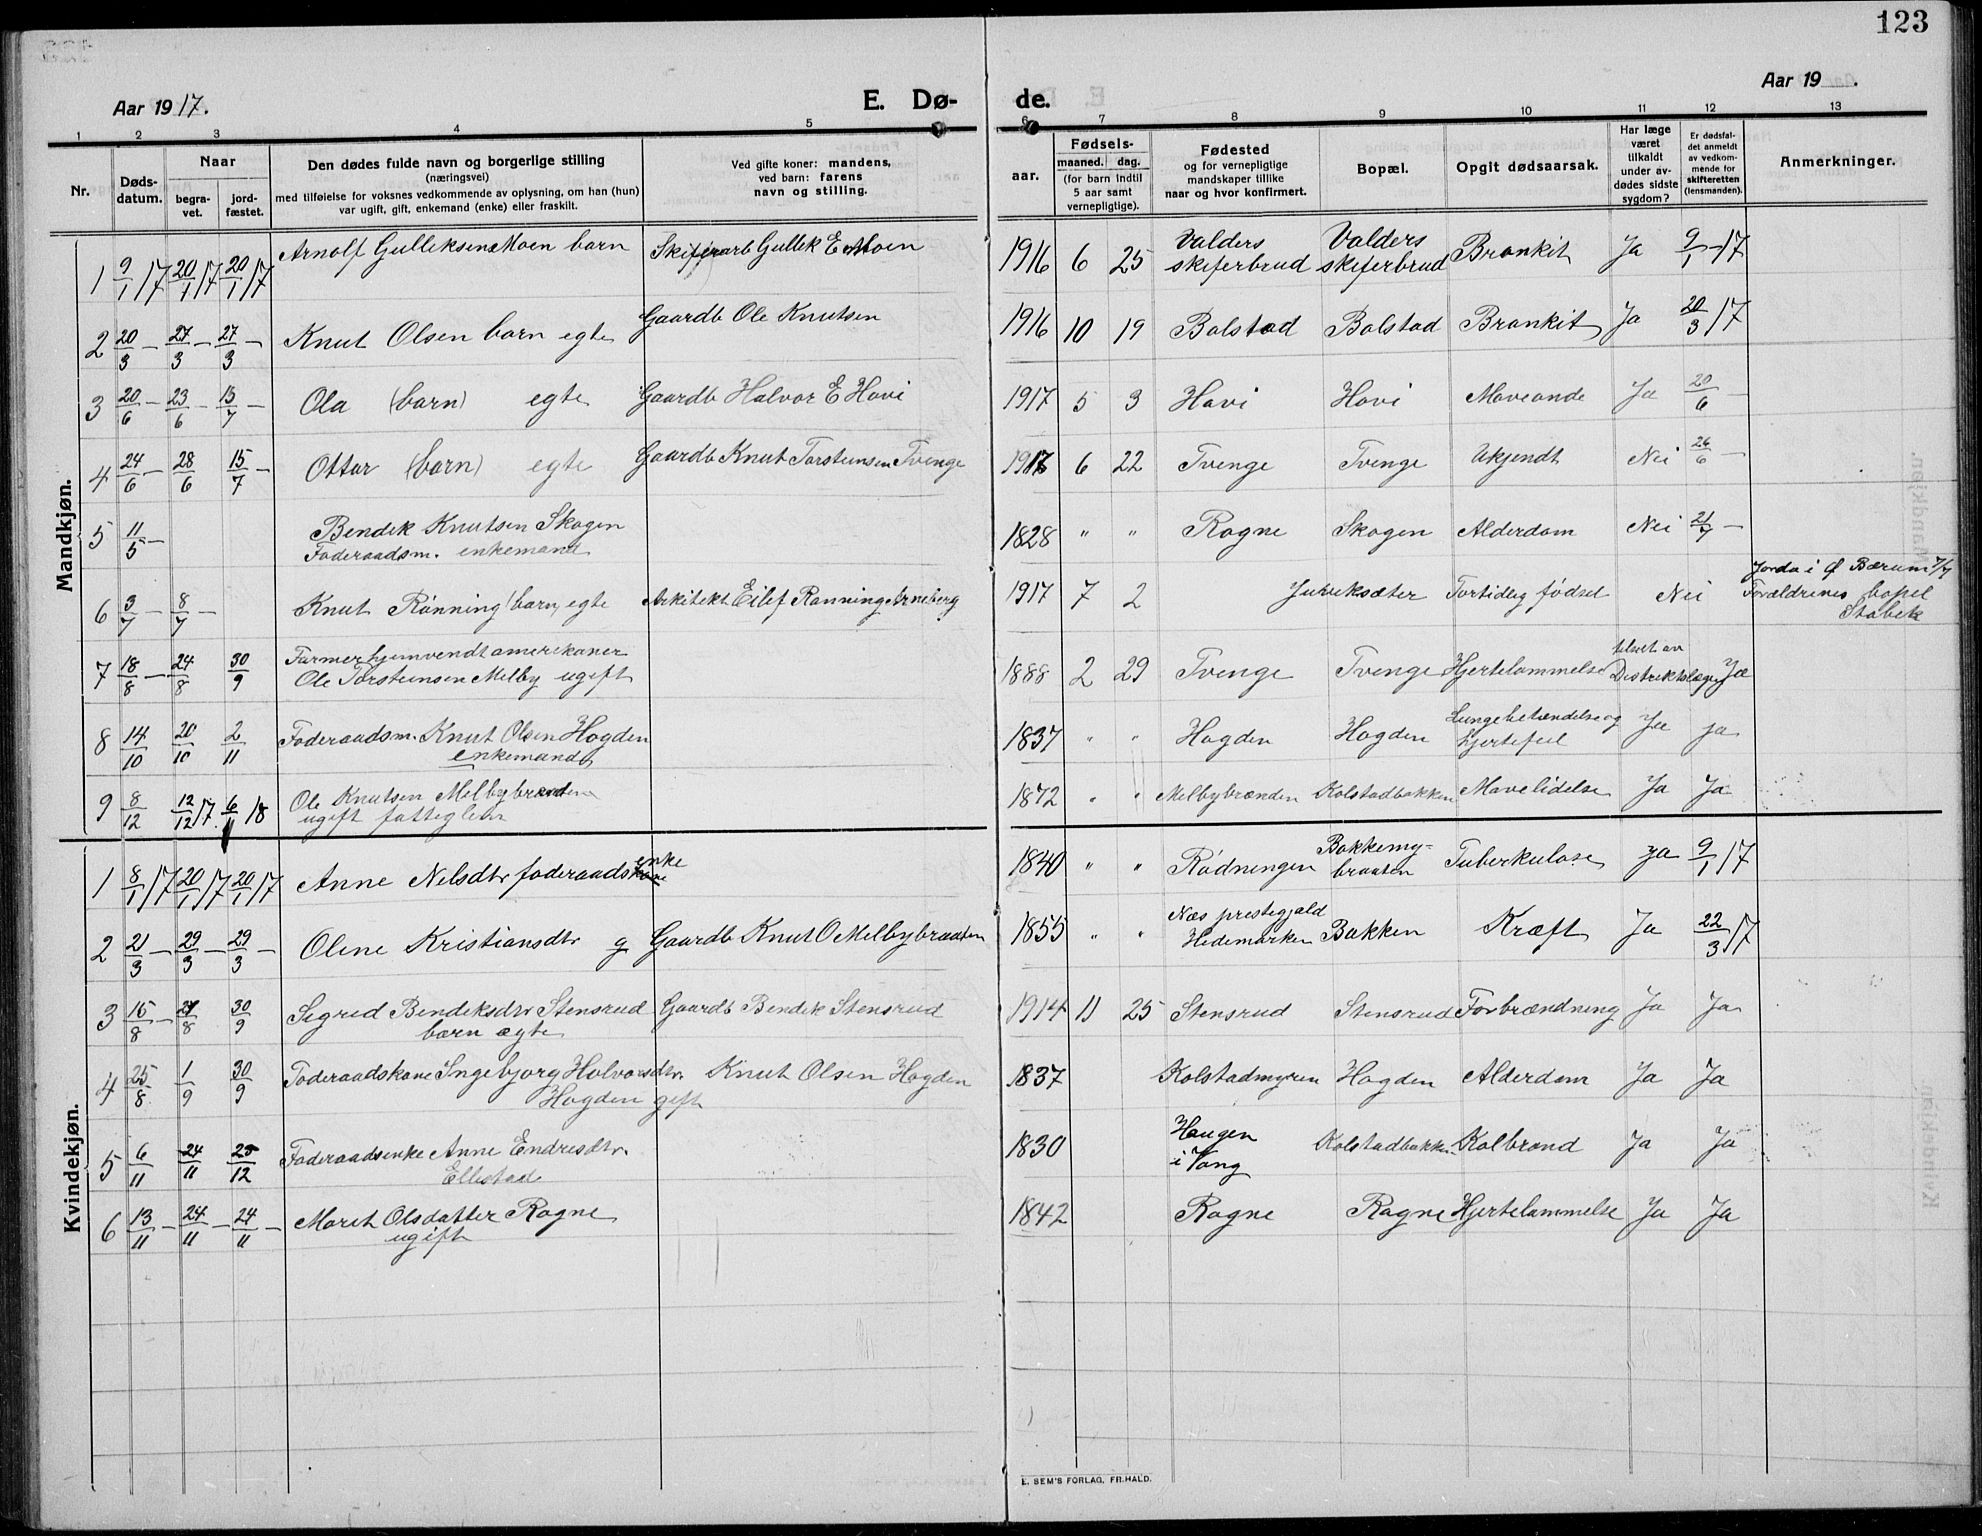 123
Aar 1917.
E. Dø-
de.
Aar 19 .
1 2 3 4 5 6 7 8 9 10 11 12 13
Nr.
Døds-
datum.
Naar
begra-
vet.
jord-
fæstet.
Den dødes fulde navn og borgerlige stilling
(næringsvei)
med tilføielse for voksnes vedkommende av oplysning, om han (hun)
var ugift, gift, enkemand (enke) eller fraskilt.
Ved gifte koner: mandens,
ved barn: farens
navn og stilling.
Fødsels-
aar.
maaned. dag.
(for barn indtil
5 aar samt
vernepligtige).
Fødested
og for vernepligtige
mandskaper tillike
naar og hvor konfirmert.
Bopæl.
Opgit dødsaarsak.
Har læge
været
tilkaldt
under av-
dødes sidste
sygdom?
Er dødsfal-
det anmeldt
av vedkom-
mende for
skifteretten
(lensmanden).
Anmerkninger.
Mandkjøn.
1 9/1 17 20/1 17 20/1 17 Arnolf Gulleksen Moen barn Skiferarb Gullek E Moen 1916 6 25 Valders skiferbrud Valders skiferbrud Bronkit Ja 9/1 - 17
2 20/3 - 27/3 - 27/3 - Knut Olsen barn egte Gaardb Ole Knutsen 1916 10 19 Bolstad Bolstad Bronkit Ja 20/3 17
3 20/6 - 23/6 - 15/7 - Ola (barn) egte Gaardb Halvor E Hovi 1917 5 3 Hovi Hovi Maveonde Ja 20/6
4 24/6 - 28/6 15/7 - Ottar (barn) egte Gaardb Knut Torsteinsen Tvenge 1917 6 22 Tvenge Tvenge Ukjendt Nei 26/6 -
5 11/5 - Bendik Knutsen Skogen
Foderaadsm. enkemand 1828 " " Rogne Skogen Alderdom Nei 21/7 -
6 3/7 - 8/7 - Knut Rønning (barn) egte Arkitekt Eilef Rønning Arneberg 1917 7 2 Juveksæter Fortidlig fødsel Nei Jorda i Ø Bærum 7/7
Forældrenes bopel
Stabek
7 18/8 - 24/8 30/9 Farmer hjemvendt amerikaner
Ole Torsteinsen Melby ugift 1888 2 29 Tvenge Tvenge Hjertelammelse tilset av
Distriktslægen Ja
8 14/10 20/10 2/11 Foderaadsm. Knut Olsen Hogden
enkemand 1837 " " Hogden Hogden Lungebetændelse og
hjertefeil Ja ja
9 8/12 12/12 17. 6/1 18 Ole Knutsen Melbybrænden
ugift fattiglem 1872 " " Melbybrænden Kolstadbakken Mavelidelse Ja Ja
Kvindekjøn.
1 8/1 17 20/1 17 20/1 17 Anne Nelsdtr foderaadsenke 1840 " " Rødningen Bakkemy-
braaten Tuberkulose ja 9/1 17
2 21/3 - 29/3 - 29/3 - Oline Kristiansdtr g Gaardb Knut O Melbybraaten 1855 " " Næs prestegjæld
Hedemarken Bakken Kræft Ja 22/3 17
3 16/8 - 21/8 30/9 Sigrid Bendiksdtr Stensrud
barn ægte Gaardb Bendik Stensrud 1914 11 25 Stensrud Stensrud Forbrændning Ja Ja
4 25/8 1/9 30/9 Foderaadskone Ingebjørg Halvorsdtr.
Hogden gift Knut Olsen Hogden 1837 Kolstadmyren Hogden Alderdom Ja Ja
5 6/11 24/11 25/12 Foderaadsenke Anne Endresdtr.
Ellestad 1830 Haugen
i Vang Kolstadbakken Kolbrand Ja Ja
6 13/11 - 24/11 - 24/11 - Marit Olsdatter Rogne
ugift 1842 Rogne Rogne Hjertelammelse Ja Ja
E. SEM'S FORLAG, FR.HALD.